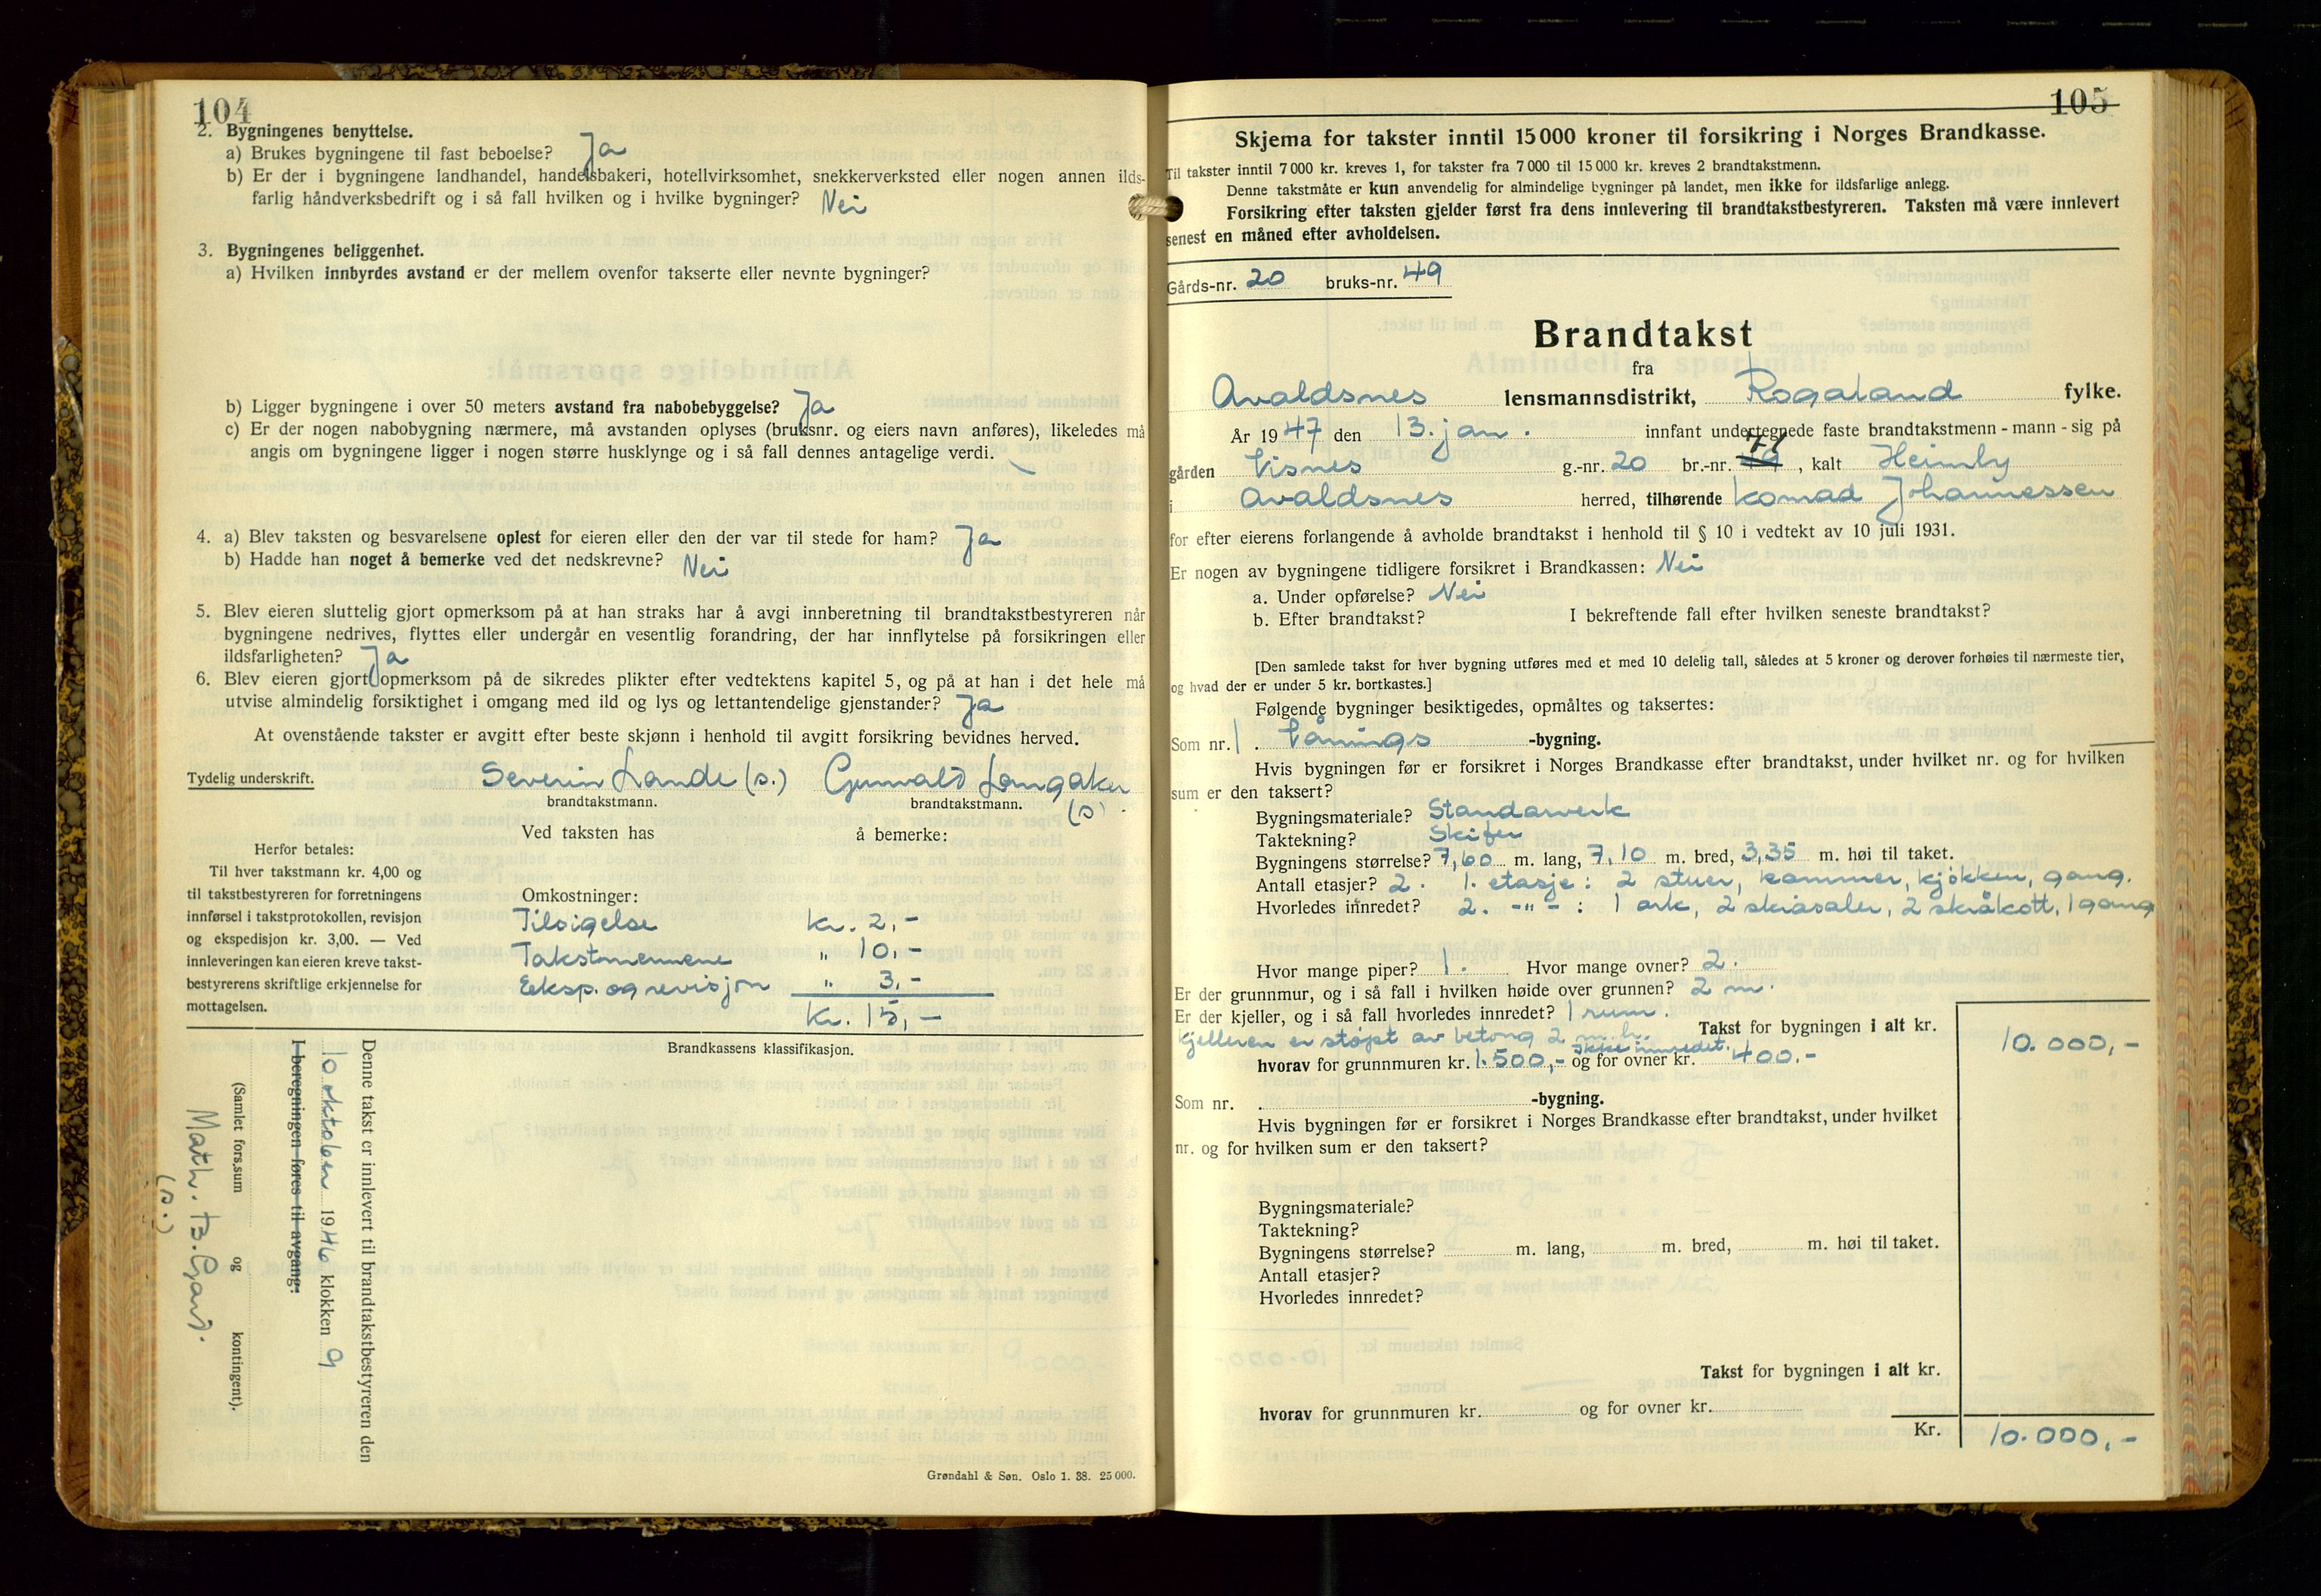 104
2. Bygningenes benyttelse.
a) Brukes bygningene til fast beboelse? Ja
b) Er der i bygningene landhandel, handelsbakeri, hotellvirksomhet, snekkerverksted eller nogen annen ilds-
farlig håndverksbedrift og i så fall hvilken og i hvilke bygninger? Nei
3. Bygningenes beliggenhet.
a) Hvilken innbyrdes avstand er der mellem ovenfor takserte eller nevnte bygninger?
b) Ligger bygningene i over 50 meters avstand fra nabobebyggelse? Ja
c) Er der nogen nabobygning nærmere, må avstanden oplyses (bruksnr. og eiers navn anføres), likeledes må
angis om bygningene ligger i nogen større husklynge og i så fall dennes antagelige verdi.
4. a) Blev taksten og besvarelsene oplest for eieren eller den der var til stede for ham? Ja
b) Hadde han noget å bemerke ved det nedskrevne? Nei
5. Blev eieren sluttelig gjort opmerksom på at han straks har å avgi innberetning til brandtakstbestyreren når
bygningene nedrives, flyttes eller undergår en vesentlig forandring, der har innflytelse på forsikringen eller
ildsfarligheten? Ja
6. Blev eieren gjort opmerksom på de sikredes plikter efter vedtektens kapitel 5, og på at han i det hele må
utvise almindelig forsiktighet i omgang med ild og lys og lettantendelige gjenstander? Ja
At ovenstående takster er avgitt efter beste skjønn i henhold til avgitt forsikring bevidnes herved.
Tydelig underskrift. Severin Lande (s.) Gunvald Langaker (s)
brandtakstmann. brandtakstmann.
Ved taksten has å bemerke:
Herfor betales:
Til hver takstmann kr. 4,00 og
til takstbestyreren for forretningens
innførsel i takstprotokollen, revisjon
og ekspedisjon kr. 3,00. — Ved
innleveringen kan eieren kreve takst-
bestyrerens skriftlige erkjennelse for
mottagelsen.
Omkostninger:
Tilsigelse kr. 2,-
Takstmennene " 10,-
Eeksp. og revisjon " 3,-
kr. 15,-
Brandkassens klassifikasjon.
Denne takst er innlevert til brandtakstbestyreren den
10 oktober 1946 klokken 9
I beregningen føres til avgang:
(Samlet fors.sum og kontingent).
Math. B. Gard.
(s.)
Grøndahl & Søn. Oslo 1. 38. 25 000.
105
Skjema for takster inntil 15 000 kroner til forsikring i Norges Brandkasse.
Til takster inntil 7 000 kr. kreves 1, for takster fra 7 000 til 15 000 kr. kreves 2 brandtakstmenn.
Denne takstmåte er kun anvendelig for almindelige bygninger på landet, men ikke for ildsfarlige anlegg.
Forsikring efter taksten gjelder først fra dens innlevering til brandtakstbestyreren. Taksten må være innlevert
senest en måned efter avholdelsen.
Gårds-nr. 20 bruks-nr. 49
Brandtakst
fra
Avaldsnes lensmannsdistrikt, Rogaland fylke.
År 1947 den 13. jan. innfant undertegnede faste brandtakstmenn - mann - sig på
gården Visnes g.-nr. 20 br.-nr. 49 71, kalt Heimly
i Avaldsnes herred, tilhørende Konrad Johannessen
for efter eierens forlangende å avholde brandtakst i henhold til § 10 i vedtekt av 10 juli 1931.
Er nogen av bygningene tidligere forsikret i Brandkassen: Nei
a. Under opførelse? Nei
b. Efter brandtakst? I bekreftende fall efter hvilken seneste brandtakst?
[Den samlede takst for hver bygning utføres med et med 10 delelig tall, således at 5 kroner og derover forhøies til nærmeste tier,
og hvad der er under 5 kr. bortkastes.]
Følgende bygninger besiktigedes, opmåltes og taksertes:
Som nr. 1. Vånings -bygning.
Hvis bygningen før er forsikret i Norges Brandkasse efter brandtakst, under hvilket nr. og for hvilken
sum er den taksert?
Bygningsmateriale? Standarverk
Taktekning? Skifer
Bygningens størrelse? 7,60 m. lang, 7,10 m. bred, 3,35 m. høi til taket.
Antall etasjer? 2. 1. etasje: 2 stuer, kammer, kjøkken, gang.
Hvorledes innredet? 2. -"- : 1 ark, 2 skråsaler, 2 skråkott, 1 gang
Hvor mange piper? 1. Hvor mange ovner? 2.
Er der grunnmur, og i så fall i hvilken høide over grunnen? 2 m.
Er der kjeller, og i så fall hvorledes innredet? 1 rum.
Kjelleren er støpt av betong 2 m. h. ikke innredet. Takst for bygningen i alt kr. 10.000,-
hvorav for grunnmuren kr. 1.500,- og for ovner kr. 400.-
Som nr. . -bygning.
Hvis bygningen før er forsikret i Norges Brandkasse efter brandtakst, under hvilket
nr. og for hvilken sum er den taksert?
Bygningsmateriale?
Taktekning?
Bygningens størrelse? m. lang, m. bred, m. høi til taket.
Antall etasjer?
Hvorledes innredet?
Takst for bygningen i alt kr.
hvorav for grunnmuren kr. og for ovner kr.
Kr. 10.000,-